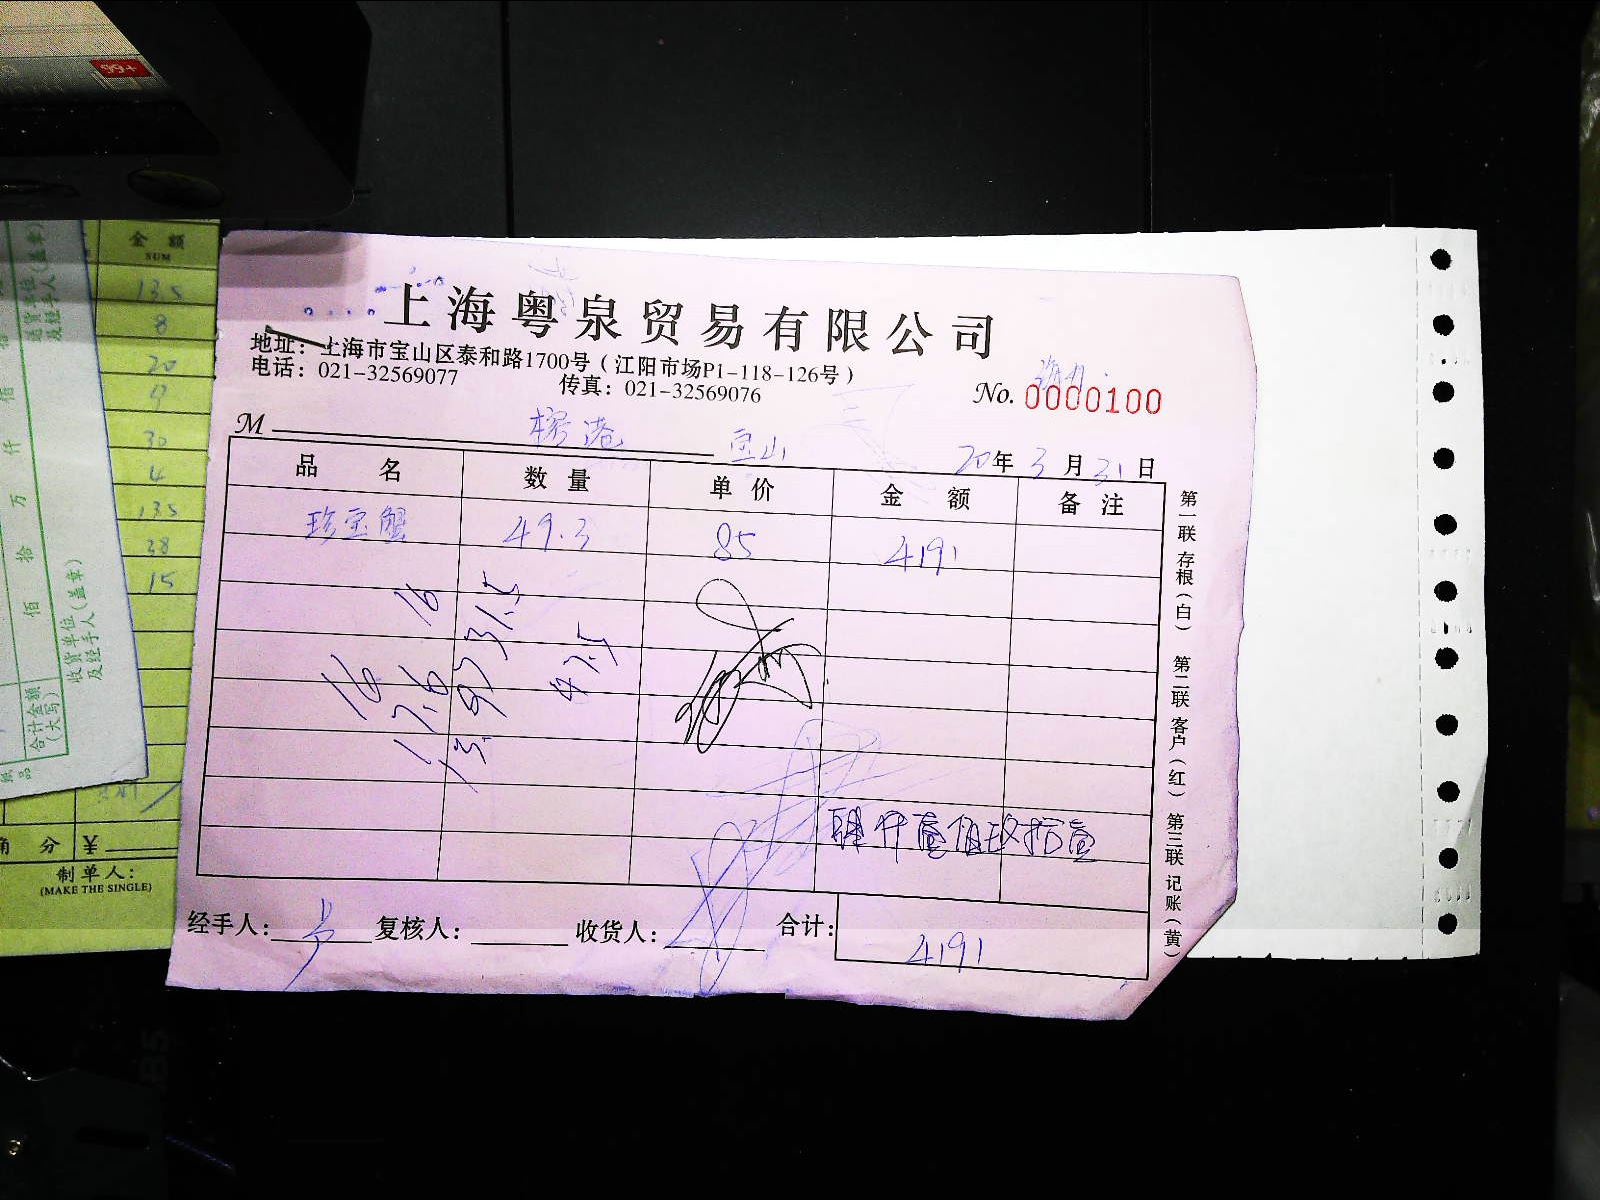 上海粤泉贸易有限公司
地址：上海市宝山区泰和路1700号（江阳市场P1-118-126号）
电话：021-32569077 传真：021-32569076
No. 0000100
M 宝山 20年3月31日
品名 数量 单价 金额 备注
珍宝蟹 49.3 85 4191
16
31.5
16
17.6
47.5
13.
肆仟壹佰玖拾壹
经手人： 复核人： 收货人： 合计： 4191
第一联存根（白） 第二联客户（红） 第三联记账（黄）
金额
SUM
135
8
20
9
30
4
135
38
15
角 分 ¥
制单人：
(MAKE THE SINGLE)
送货单位（盖章）
及经手人
佰 仟 万 拾 佰
收货单位（盖章）
及经手人
合计金额
（大写）
99+